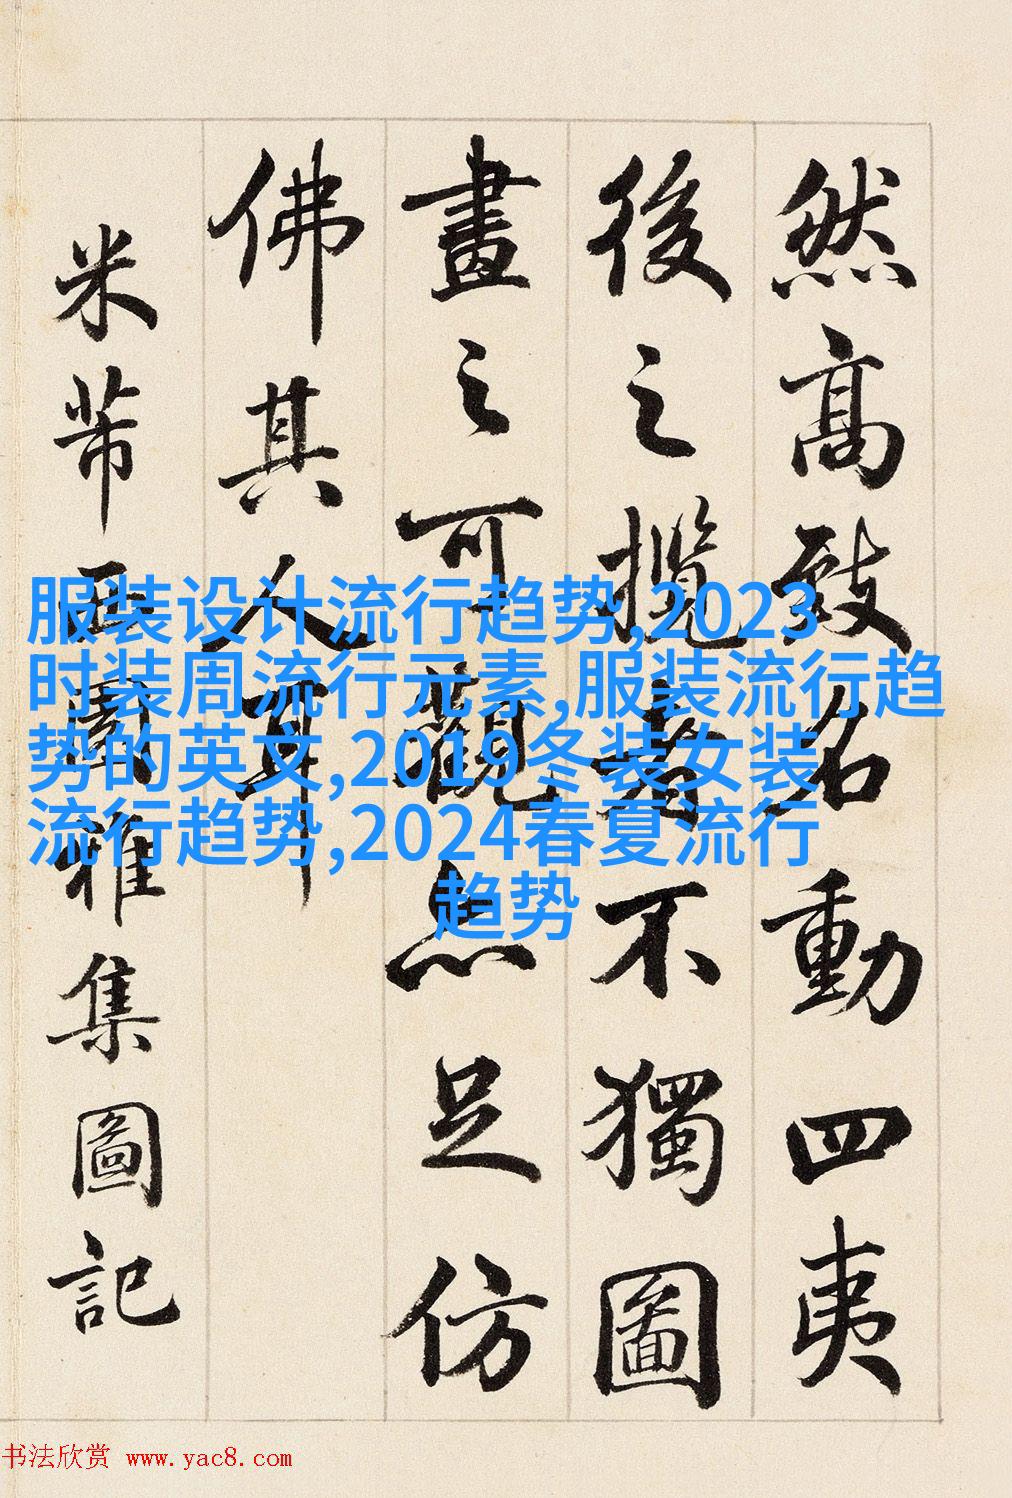 然高致名動四夷
後之攬者不獨圖
畫之可觀亦足仿
佛其人耳
米芾西園雅集圖記
服装设计流行趋势,2023
时装周流行元素,服装流行趋
势的英文,2019冬装女装
流行趋势,2024春夏流行
趋势
书法欣赏 www.yac8.com